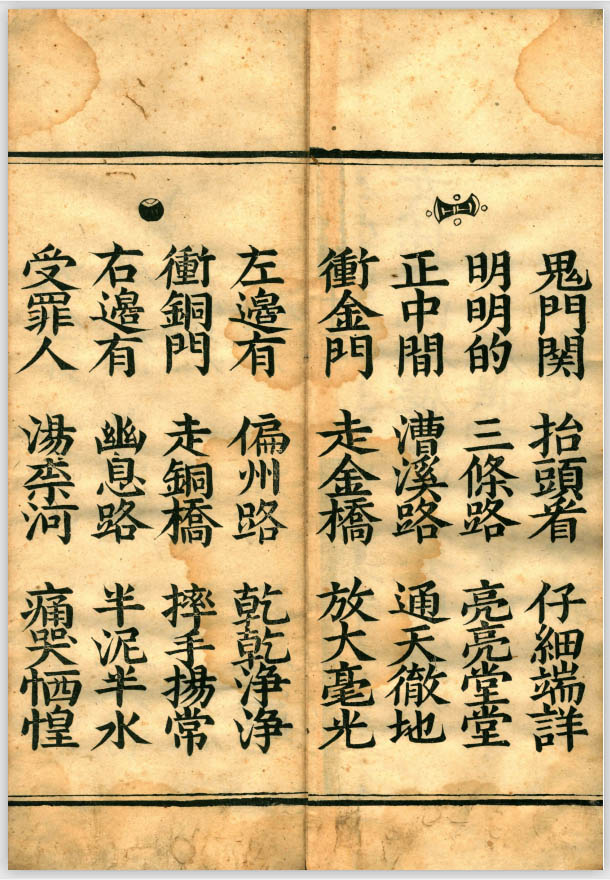 鬼門関 抬頭看 仔細端詳
明明的 三條路 亮亮堂堂
正中間 漕溪路 通天徹地
衝金門 走金橋 放大毫光
左邊有 偏州路 乾乾浄浄
衝銅門 走銅橋 摔手揚常
右邊有 幽息路 半泥半水
受罪人 湯柰河 痛哭恓惶